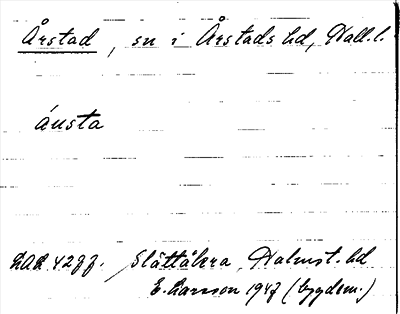 Årstad, sn i Årstads hd, Hall. l.
ánsta
Slättåkra, Halmst. hd
E. Larsson 1947 (bygdem.)